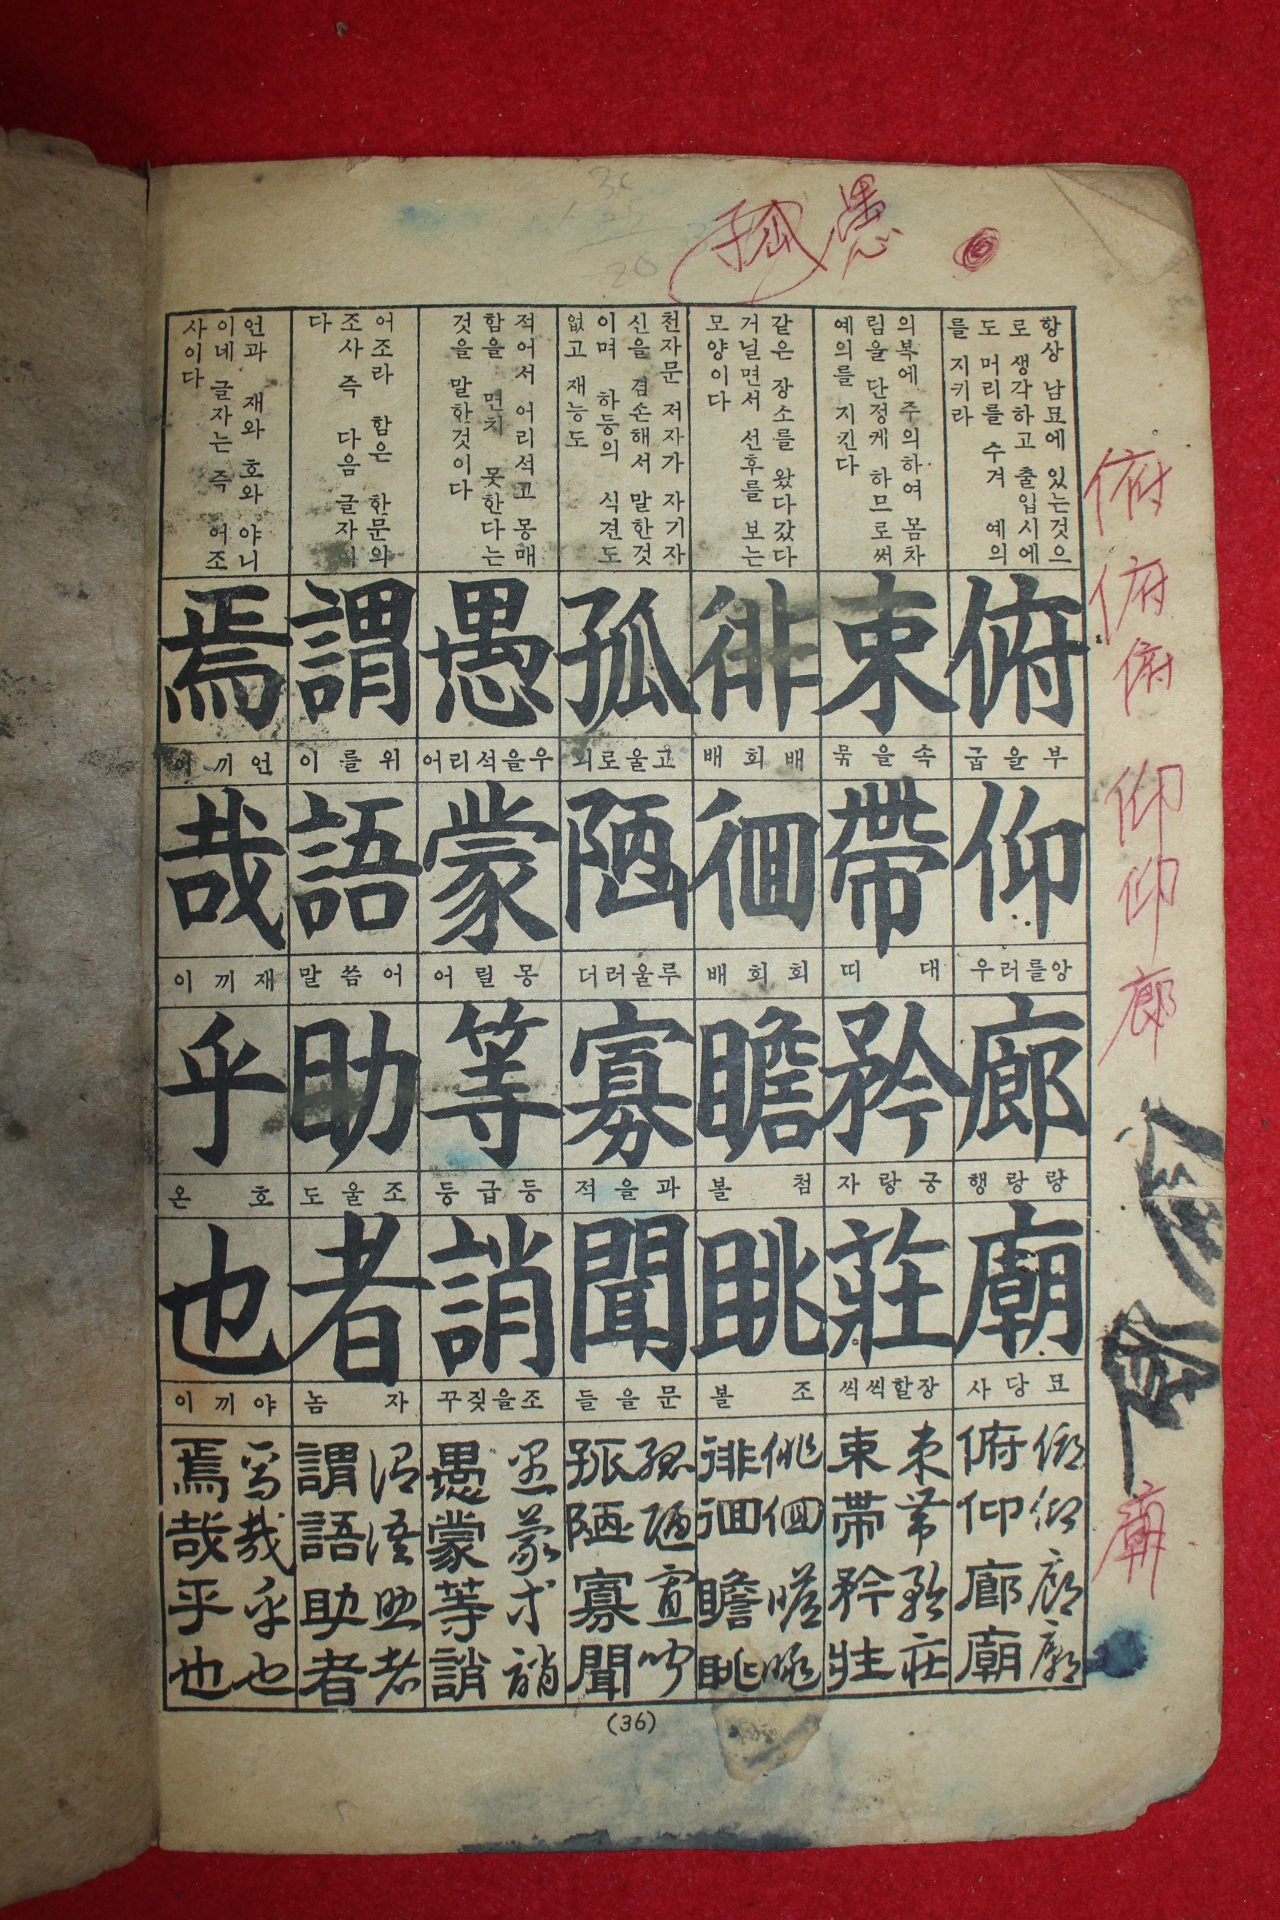 孤 愚
항상 남묘에 있는것으
로 생각하고 출입시에
도 머리를 수겨 예의
를 지키라
俯
굽을부
仰
우러를앙
廊
행랑랑
廟
사당묘
俯仰廊廟
俯仰廊廟
의복에 주의하여 몸차
림을 단정케 하므로써
예의를 지킨다
束
묶을속
帶
띠대
矜
자랑긍
莊
씩씩할장
束帶矜莊
束帶矜莊
같은 장소를 왔다갔다
거닐면서 선후를 보는
모양이다
徘
배회배
徊
배회회
瞻
볼첨
眺
볼조
徘徊瞻眺
徘徊瞻眺
천자문 저자가 자기자
신을 겸손해서 말한것
이며 하등의 식견도
없고 재능도
孤
외로울고
陋
더러울루
寡
적을과
聞
들을문
孤陋寡聞
孤陋寡聞
적어서 어리석고 몽매
함을 면치 못한다는
것을 말한것이다
愚
어리석을우
蒙
어릴몽
等
등급등
誚
꾸짖을조
愚蒙等誚
愚蒙等誚
어조라 함은 한문의
조사 즉 다음 글자이
다
謂
이를위
語
말씀어
助
도울조
者
놈자
謂語助者
謂語助者
언과 재와 호와 야니
이네 글자는 즉 어조
사이다
焉
이끼언
哉
이끼재
乎
온호
也
이끼야
焉哉乎也
焉哉乎也
俯
俯
俯
仰
仰
廊
廟
(36)